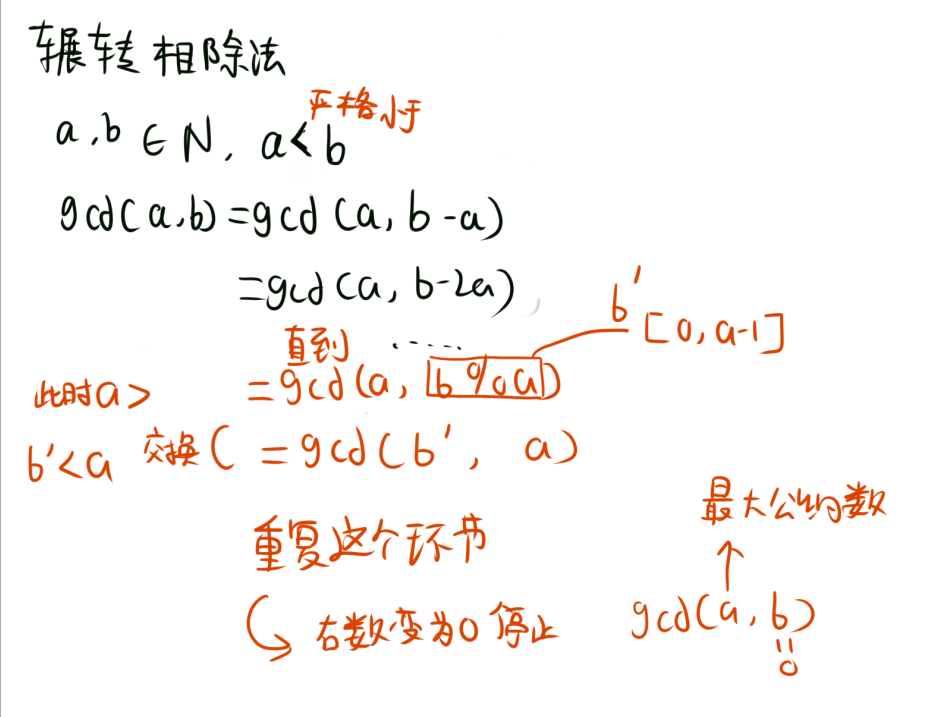 辗转相除法
严格小于
a,b ∈ N, a<b
gcd(a,b)=gcd(a, b-a)
=gcd(a, b-2a)
b' [0, a-1]
直到 ......
此时a>
=gcd(a, b%a)
b'<a 交换( =gcd(b', a)
最大公约数
重复这个环节
gcd(a, b)
右数变为0 停止
=
0